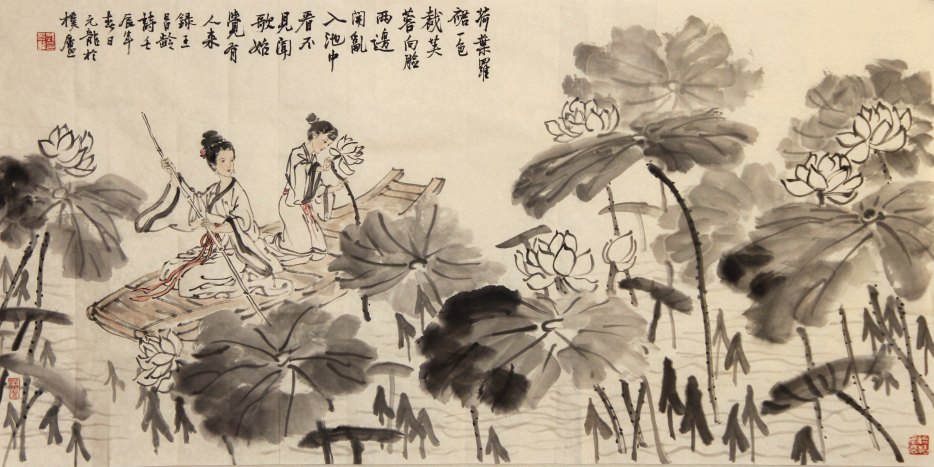 荷葉羅
裙一色
裁芙
蓉向臉
兩邊
開亂
入池中
看不
見聞
歌始
覺有
人来
録王
昌齡
詩壬
辰年
春日
元龍於
樸廬